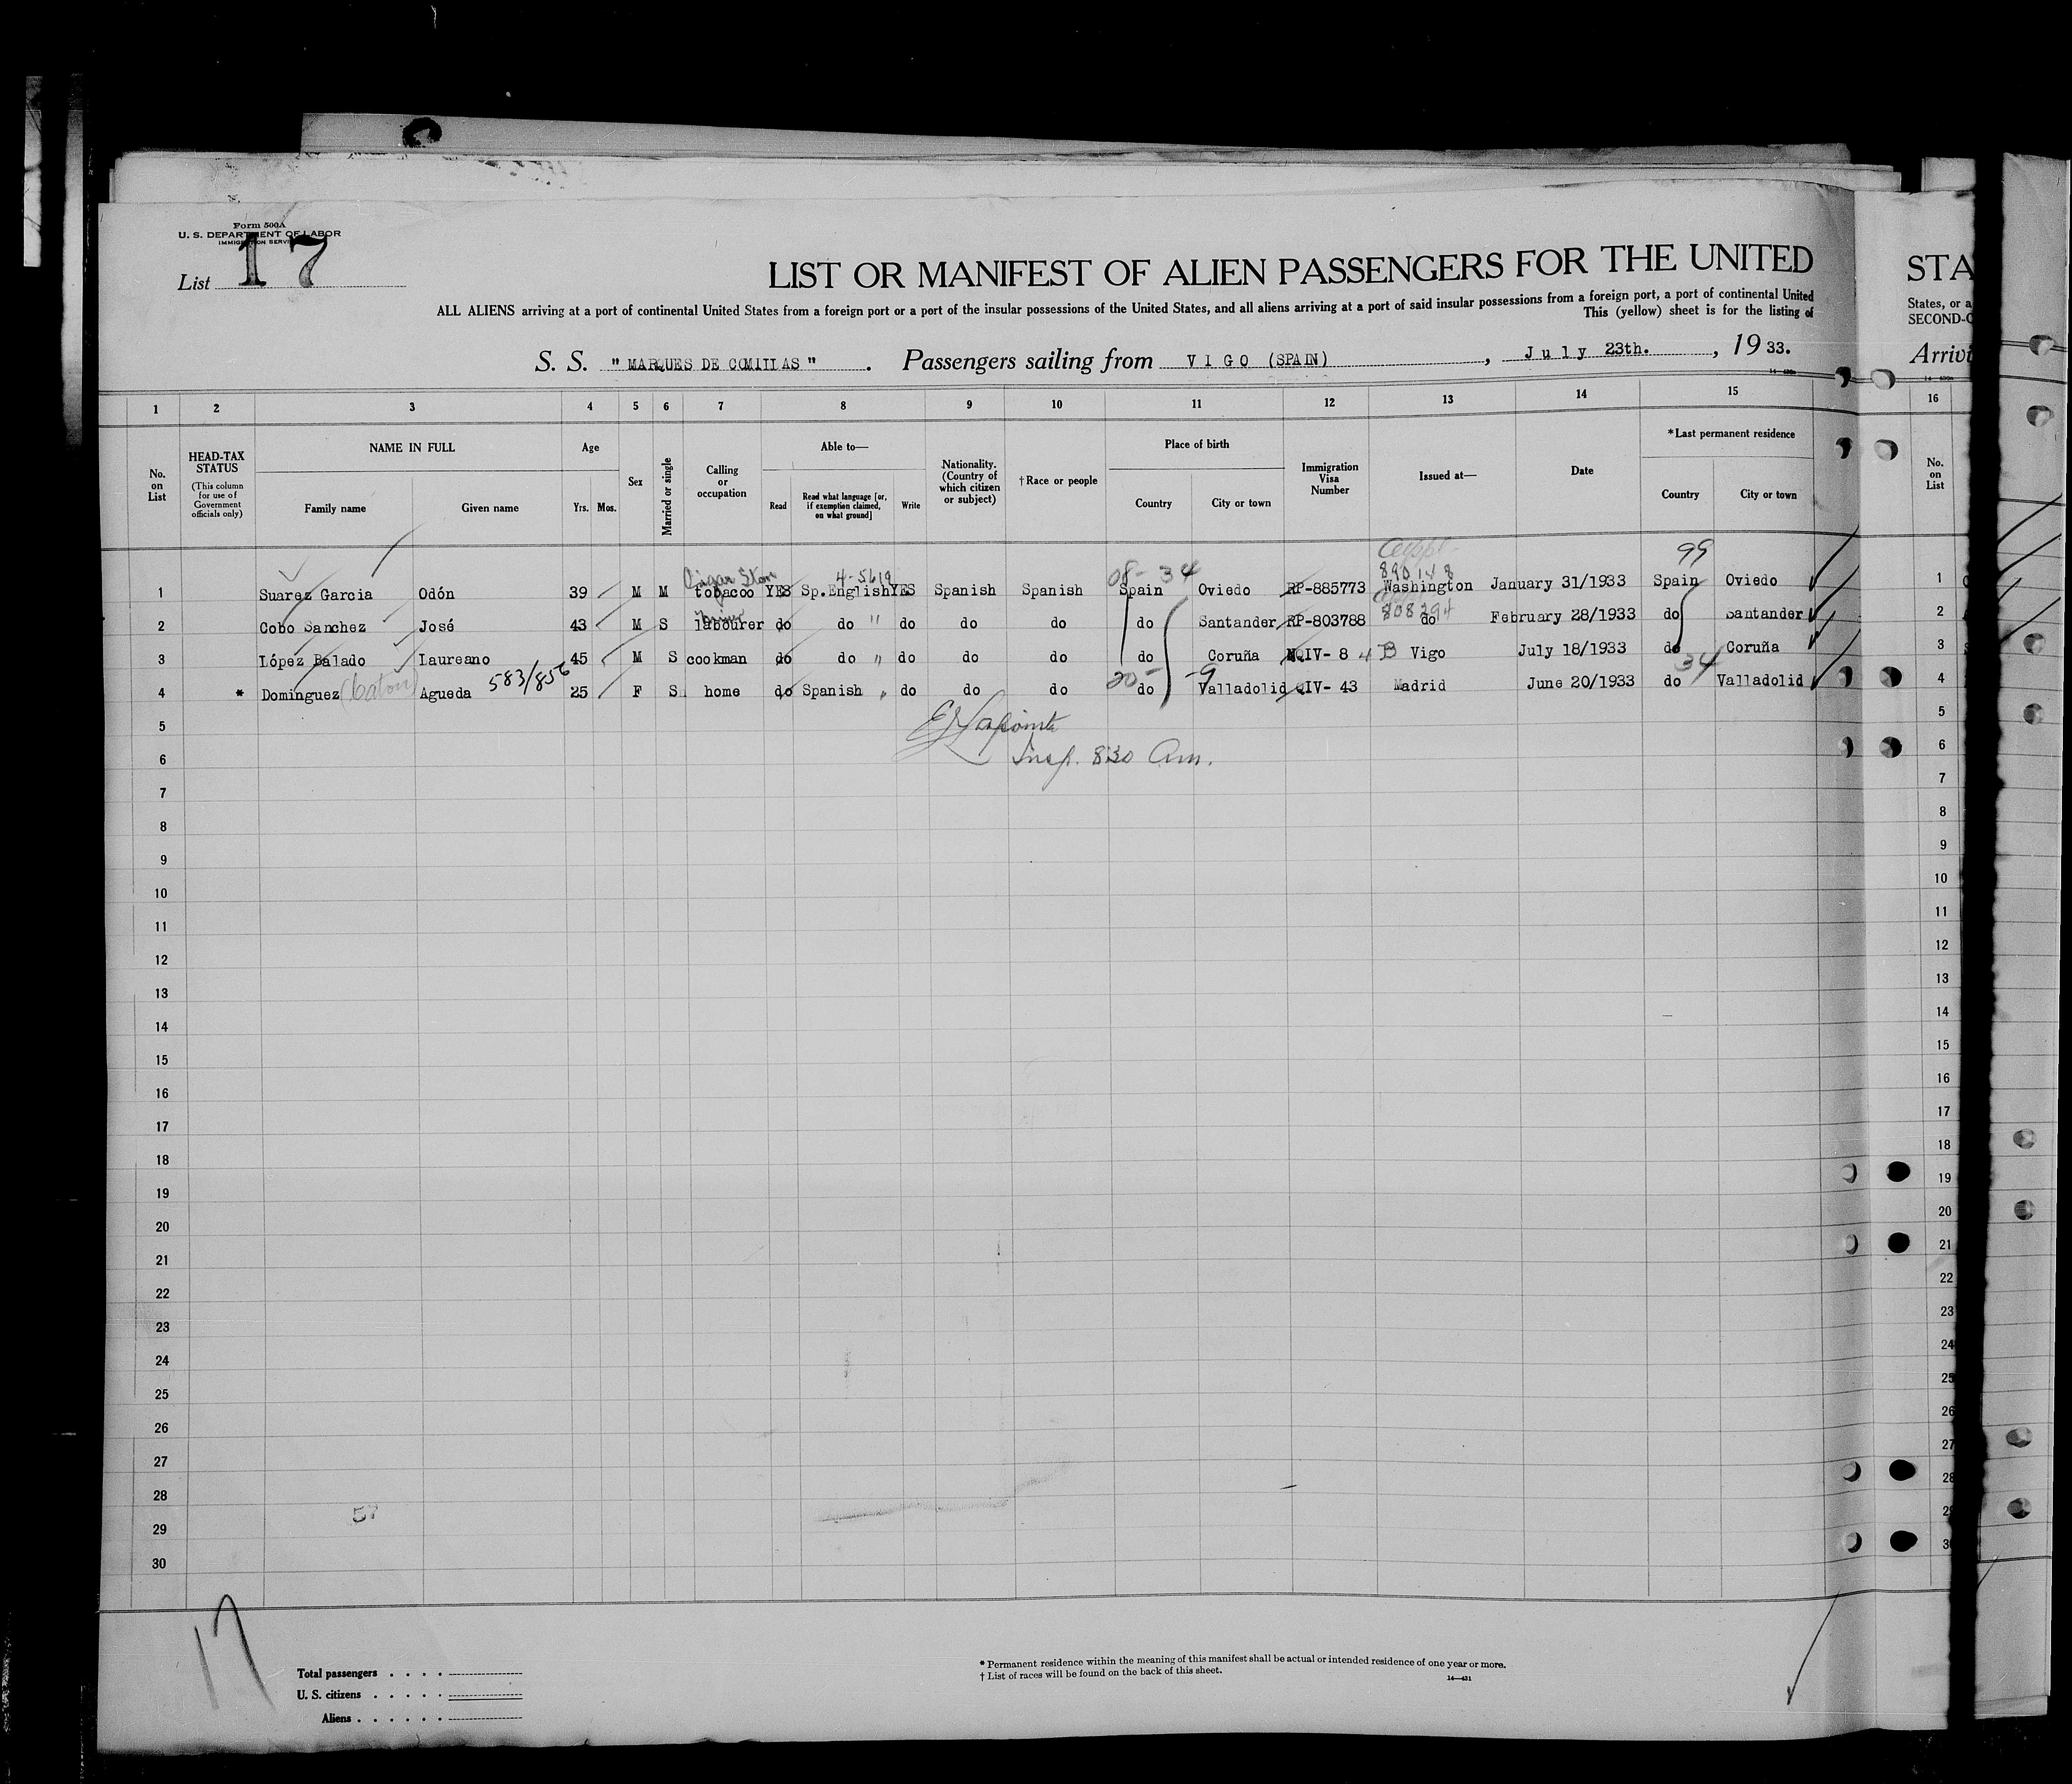 Form 500A
U. S. DEPARTMENT OF LABOR
IMMIGRATION SERVICE
List 17
LIST OR MANIFEST OF ALIEN PASSENGERS FOR THE UNITED
STA
ALL ALIENS arriving at a port of continental United States from a foreign port or a port of the insular possessions of the United States, and all aliens arriving at a port of said insular possessions from a foreign port, a port of continental United
States, or a
This (yellow) sheet is for the listing of
SECOND-C
S. S. "MARQUES DE COMILLAS". Passengers sailing from VIGO (SPAIN), July 23th., 1933.
Arrivi
1 2 3 4 5 6 7 8 9 10 11 12 13 14 15 16
No. on List
HEAD-TAX STATUS
(This column for use of Government officials only)
NAME IN FULL
Family name Given name
Age
Yrs. Mos.
Sex
Married or single
Calling or occupation
Able to—
Read
Read what language [or, if exemption claimed, on what ground]
Write
Nationality. (Country of which citizen or subject)
†Race or people
Place of birth
Country City or town
Immigration Visa Number
Issued at—
Date
*Last permanent residence
Country City or town
No. on List
08-34 99
4-5619 890148
1 Suarez Garcia Odón 39 M M tobacoo YES Sp.English YES Spanish Spanish Spain Oviedo RP-885773 Washington January 31/1933 Spain Oviedo 1
808294
2 Cobo Sanchez José 43 M S labourer do do " do do do do Santander RP-803788 do February 28/1933 do Santander 2
3 López Balado Laureano 45 M S cookman do do " do do do do Coruña NQIV- 8 4 B Vigo July 18/1933 do Coruña 3
583/856 20- -9 34
4 * Dominguez Agueda 25 F S home do Spanish do do do do Valladolid QIV- 43 Madrid June 20/1933 do Valladolid 4
5 5
Insp. 830 Am.
6 6
7 7
8 8
9 9
10 10
11 11
12 12
13 13
14 14
15 15
16 16
17 17
18 18
19 19
20 20
21 21
22 22
23 23
24 24
25 25
26 26
27 27
28 28
57
29 29
30 3
17
Total passengers
U. S. citizens
Aliens
* Permanent residence within the meaning of this manifest shall be actual or intended residence of one year or more.
† List of races will be found on the back of this sheet.
14—431